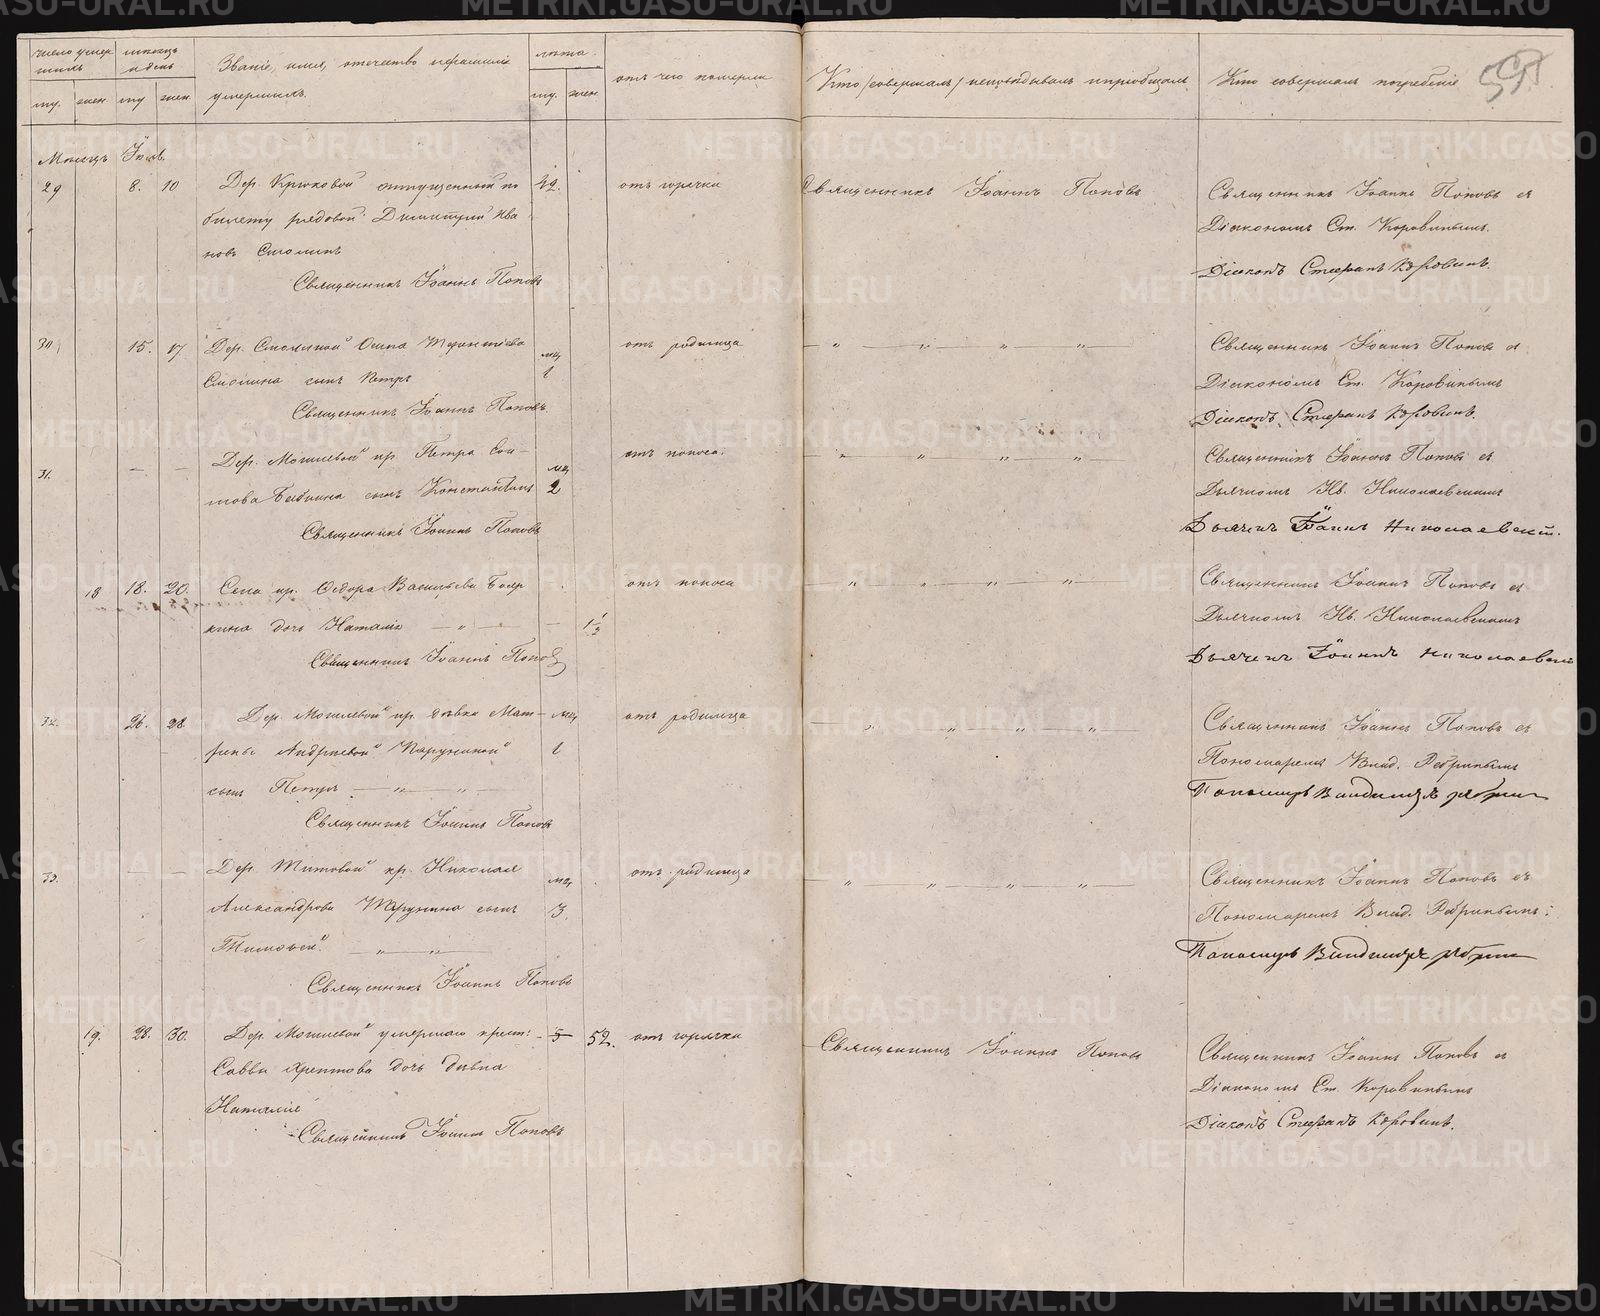 число умер
шихъ
мѣсяцъ
и день
Званіе, имя, отчество и фамилія
умершихъ.
лѣта.
отъ чего померли
Кто исповѣдывалъ и пріобщалъ
Кто совершалъ погребеніе
му. жен. му жен. му. жен.
Мѣсяцъ
29 8. 10 Дер. Крюковой отпущенный по отъ горячки Священникъ Іоаннъ Поповъ Священникъ Іоаннъ Поповъ съ
билету рядовой Димитрій Ива Діакономъ Ст. Коровинымъ.
новъ Смолинъ Діаконъ Стефанъ Коровинъ.
Священникъ Іоаннъ Поповъ
30 15. 17 Дер. Смолиной Осипа мѣц отъ родимца — „ — „ — „ — „ — Священникъ Іоаннъ Поповъ съ
Смолина сынъ Петръ 1 Діакономъ Ст. Коровинымъ
Священникъ Іоаннъ Поповъ. Діаконъ Стефанъ Коровинъ.
31. — — Дер. Могилевой кр Петра мѣц отъ поноса. „ — „ — „ — „ — Священникъ Іоаннъ Поповъ съ
сынъ Константинъ 2 Дьячкомъ Ив. Николаевскимъ
Священникъ Іоаннъ Поповъ Дьячекъ Іоаннъ Николаевскій.
18 18. 20. Села кр. Ѳедора Васильева отъ поноса „ — „ — „ — „ — Священникъ Іоаннъ Поповъ съ
кина дочь Наталія — „ — Дьячкомъ Ив. Николаевскимъ
Священникъ Іоаннъ Поповъ Дьячекъ Іоаннъ Николаевскій
32. 26. 28. Дер. Могилевой кр. дѣвки Мат- мѣц отъ родимца — „ — „ — „ — „ — Священникъ Іоаннъ Поповъ съ
рены Андреевой 1 Пономаремъ Влад. Ребринымъ
сынъ Петръ — „ — „ — Пономарь Владиміръ Ребринъ
Священникъ Іоаннъ Поповъ
33. — — Дер. Титовой кр. Николая мѣц отъ родимца „ — „ — „ — „ — Священникъ Іоаннъ Поповъ съ
Александрова сынъ 3. Пономаремъ Влад. Ребринымъ
Тимофей. — „ — „ — Пономарь Владиміръ Ребринъ
Священникъ Іоаннъ Поповъ
19. 28. 30. Дер. Могилевой умершаго крест. 52. отъ горячки Священникъ Іоаннъ Поповъ Священникъ Іоаннъ Поповъ съ
Саввы дочь дѣвка Діакономъ Ст. Коровинымъ
Наталія Діаконъ Стефанъ Коровинъ.
Священникъ Іоаннъ Поповъ
METRIKI.GASO-URAL.RU